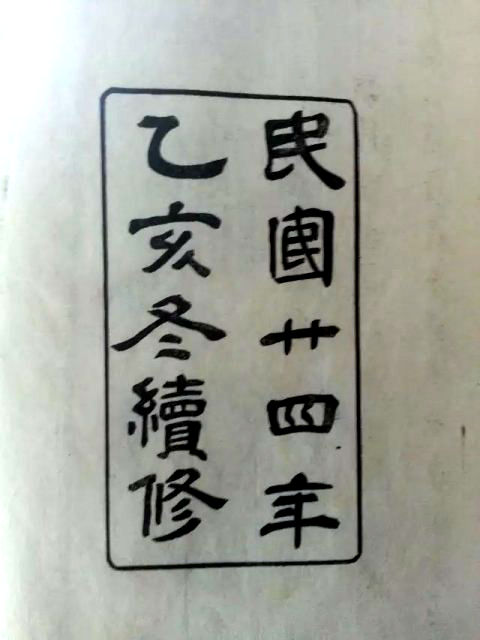 民囻廿四年
乙亥冬續修